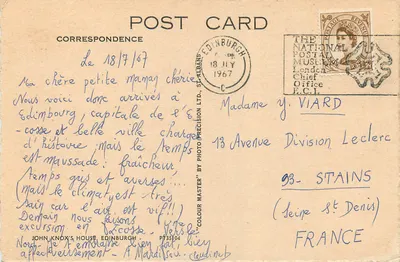 POST CARD
CORRESPONDENCE
Le 18/7/67
Ma chère petite maman chérie
Nous voici donc arrivés à
Edimbourg, capitale de l'E-
cosse et belle ville chargée
d'histoire, mais le temps
est maussade: fraîcheur,
temps gris et averses...
mais le climat est très
sain car l'air est vif!!
Demain nous faisons
excursion en Ecosse.
JOHN KNOX'S HOUSE, EDINBURGH PT35504
Nous t'embrassons bien fort, bien
affectueusement. A Mardi
"COLOUR MASTER" BY PHOTO PRECISION LTD., ST. ALBANS
EDINBURGH
18 JLY
1967
C
THE
NATIONAL
POSTAL
MUSEUM
London
Chief
Office
E.C.1.
Madame Y. VIARD
13 Avenue Division Leclerc
93- STAINS
(Seine St Denis)
FRANCE